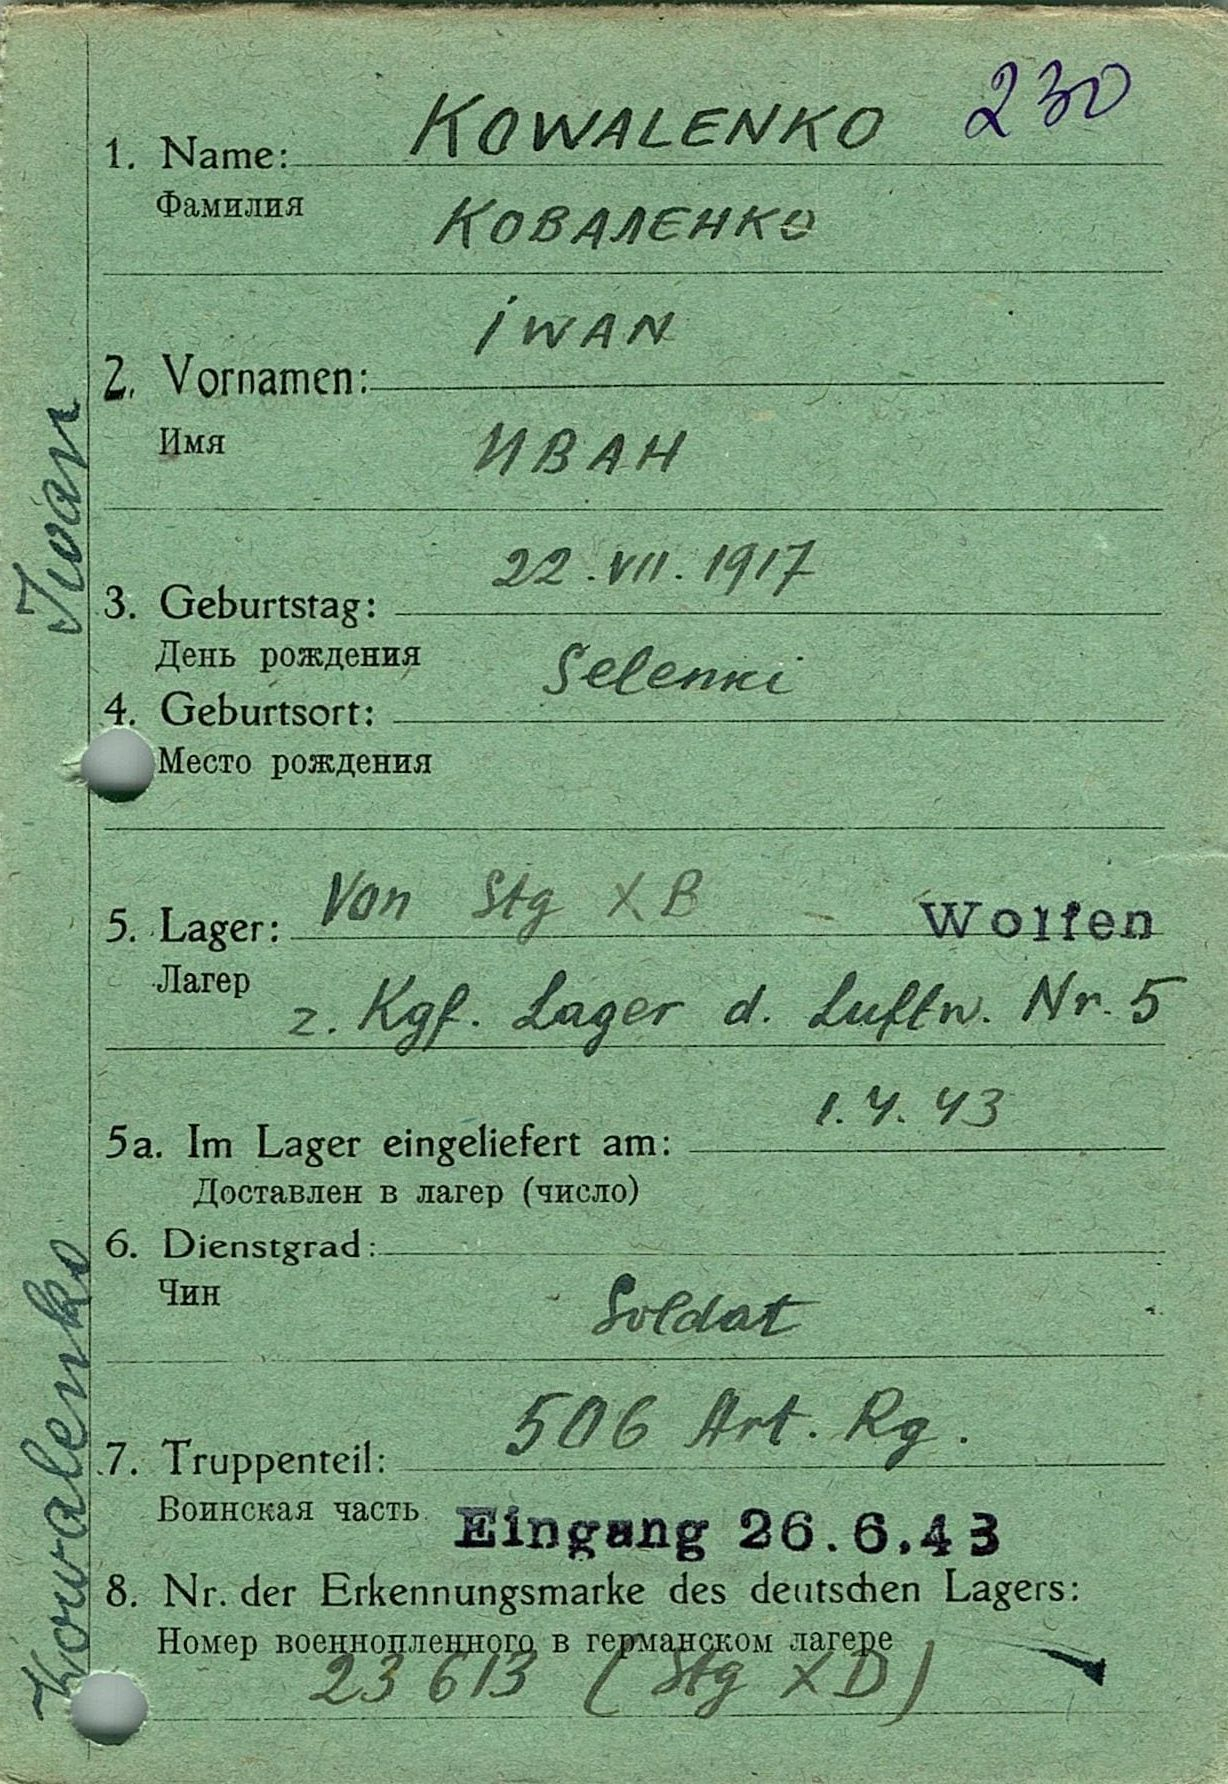 230
1. Name: KOWALENKO
Фамилия КОВАЛЕНКО
IWAN
2. Vornamen:
Имя ИВАН
22. VII. 1917
3. Geburtstag:
День рождения
Selenki
4. Geburtsort:
Место рождения
5. Lager: Von Stg X B Wolfen
Лагер
z. Kgf. Lager d. Luftw. Nr. 5
1. 4. 43
5a. Im Lager eingeliefert am:
Доставлен в лагер (число)
6. Dienstgrad:
Чин
Soldat
506 Art. Rg.
7. Truppenteil:
Воинская часть
Eingang 26.6.43
8. Nr. der Erkennungsmarke des deutschen Lagers:
Номер военнопленного в германском лагере
23613 (Stg X D)
Kowalenko Iwan